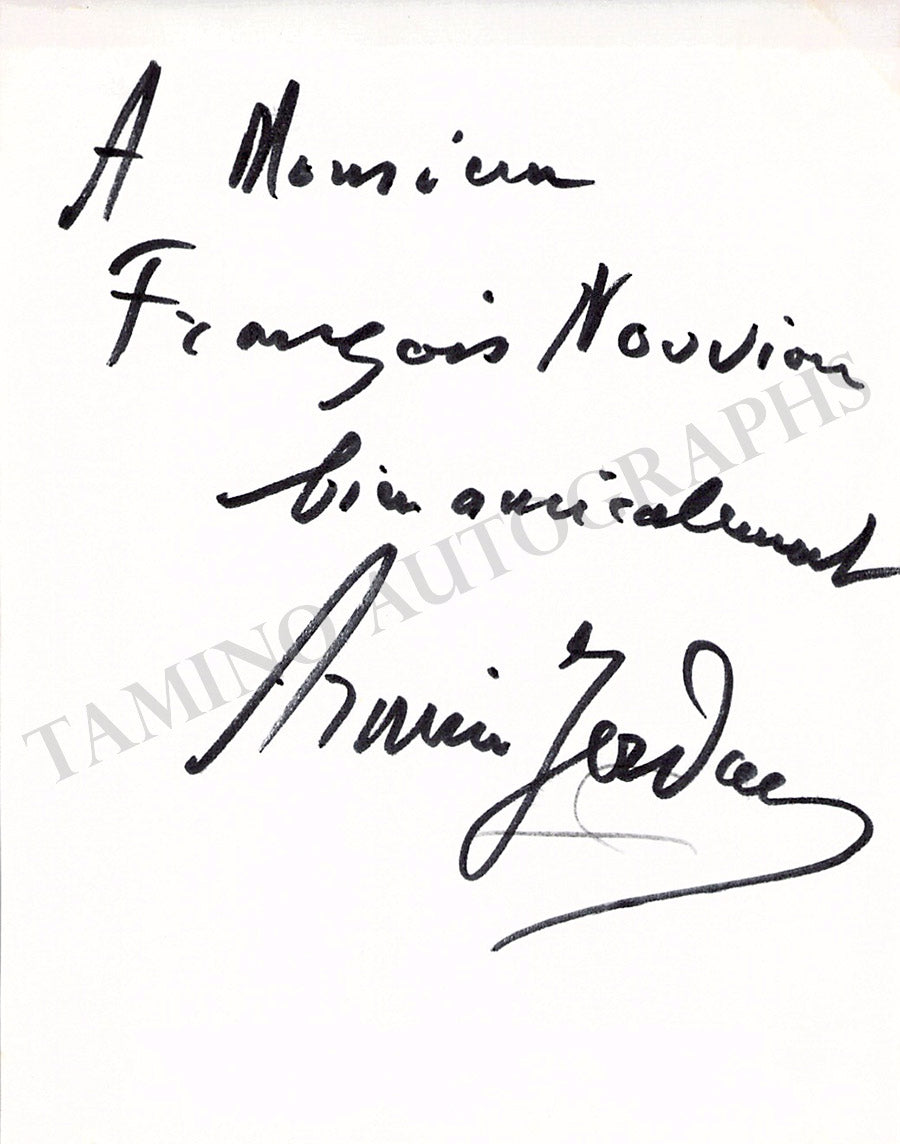 A Monsieur
François Nouvion
bien amicalement
Armin Jordan
TAMINO AUTOGRAPHS